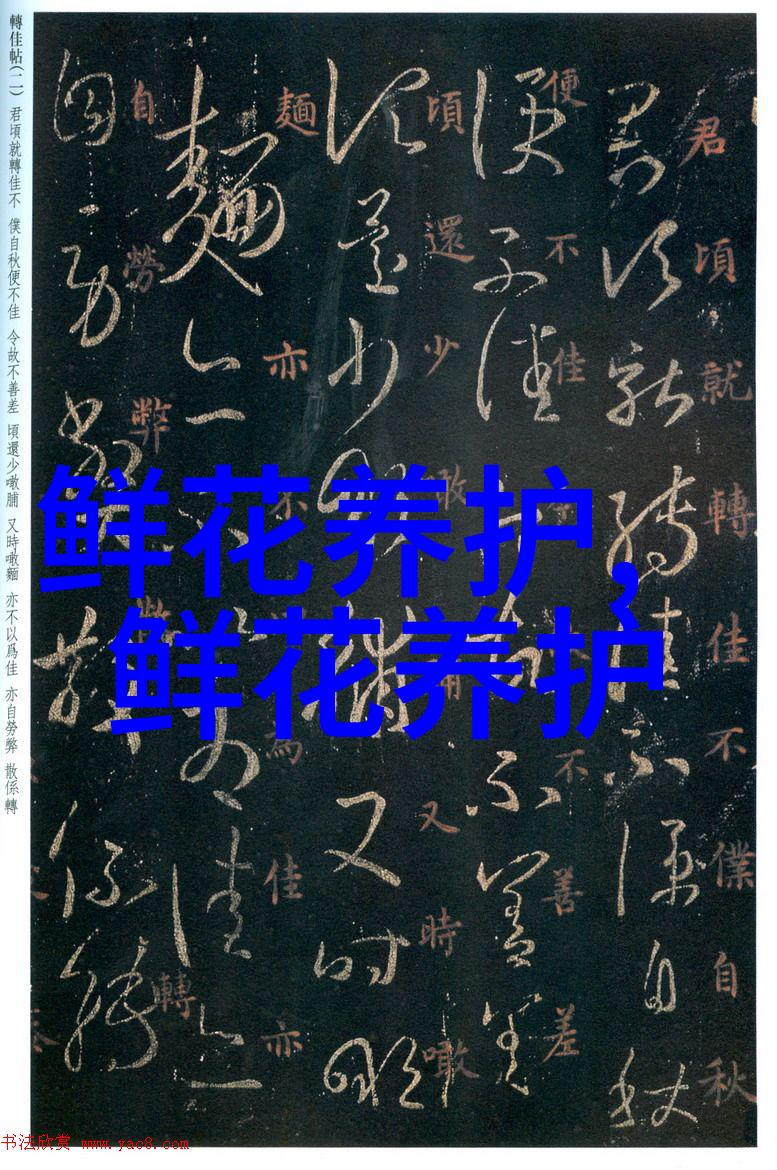 君頃就轉佳不僕自秋
便不佳今故不善差
頃還少噉脯又時噉
麵亦不以為佳亦
自勞弊散係轉
轉佳帖(二) 君頃就轉佳不 僕自秋便不佳 令故不善差 頃還少噉脯 又時噉麵 亦不以爲佳 亦自勞弊 散係轉
鲜花养护,
鲜花养护
书法欣赏 www.yac8.com